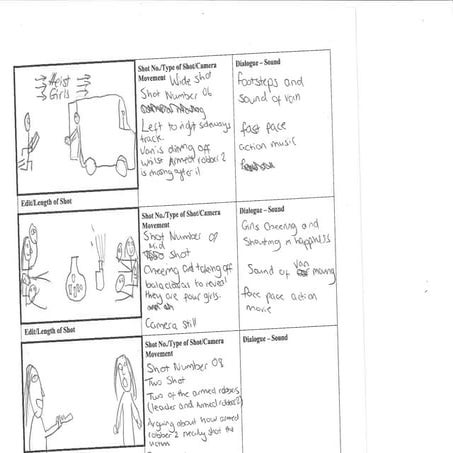 Heist
Girls
Shot No./Type of Shot/Camera
Movement Wide shot
Shot Number 06
Left to right sideways
track.
Van is driving off
whilst Armed robber 2
is moving after it
Dialogue – Sound
Footsteps and
Sound of van
fast pace
action music
Edit/Length of Shot
Shot No./Type of Shot/Camera
Movement
Shot Number 07
Mid
shot
Cheering and taking off
balaclavas to reveal
they are four girls.
Camera still
Dialogue – Sound
Girls Cheering and
Shouting in happiness
Sound of van moving
face pace action
movie
Edit/Length of Shot
Shot No./Type of Shot/Camera
Movement
Shot Number 08
Two Shot
Two of the armed robbers
(leader and Armed robber 2)
Arguing about how armed
robber 2 nearly shot the
victim
Dialogue – Sound